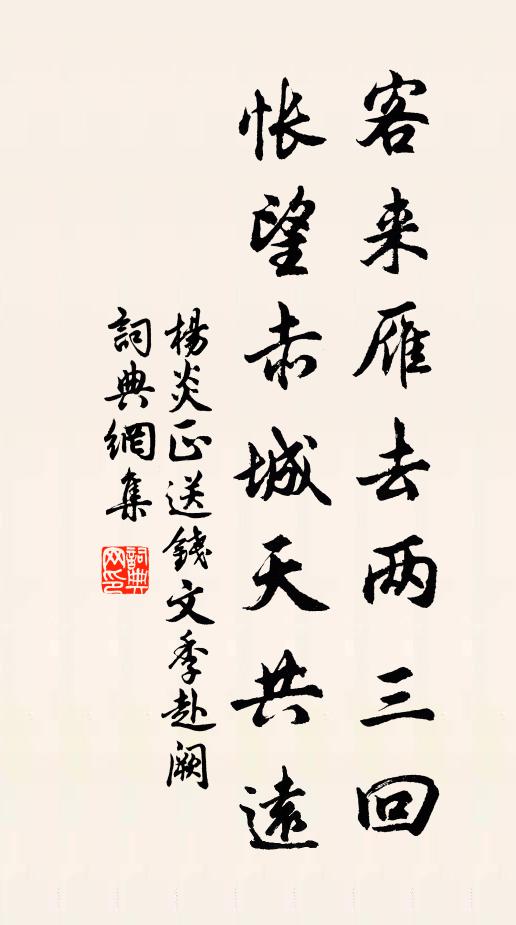 客来雁去两三回
怅望赤城天共遠
楊炎正送錢文季赴闕
詞典網集
詞典
网印